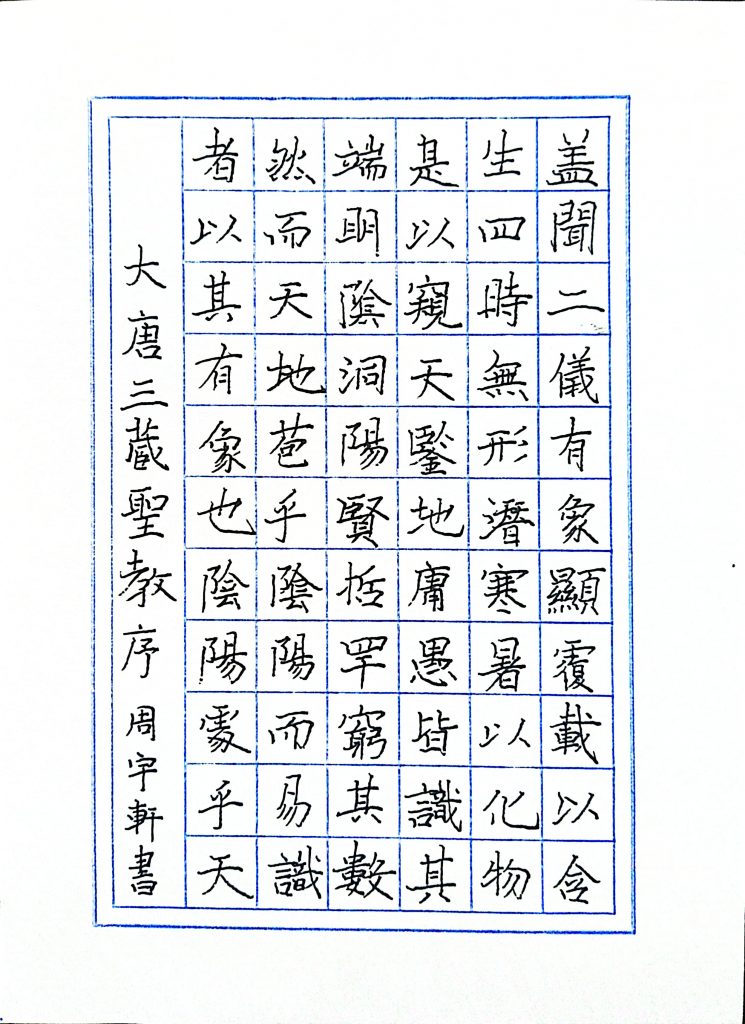 盖聞二儀有象顯覆載以含
生四時無形潛寒暑以化物
是以窺天鑒地庸愚皆識其
端明陰洞陽賢哲罕窮其數
然而天地苞乎陰陽而易識
者以其有象也陰陽處乎天
大唐三藏聖教序 周宇軒書